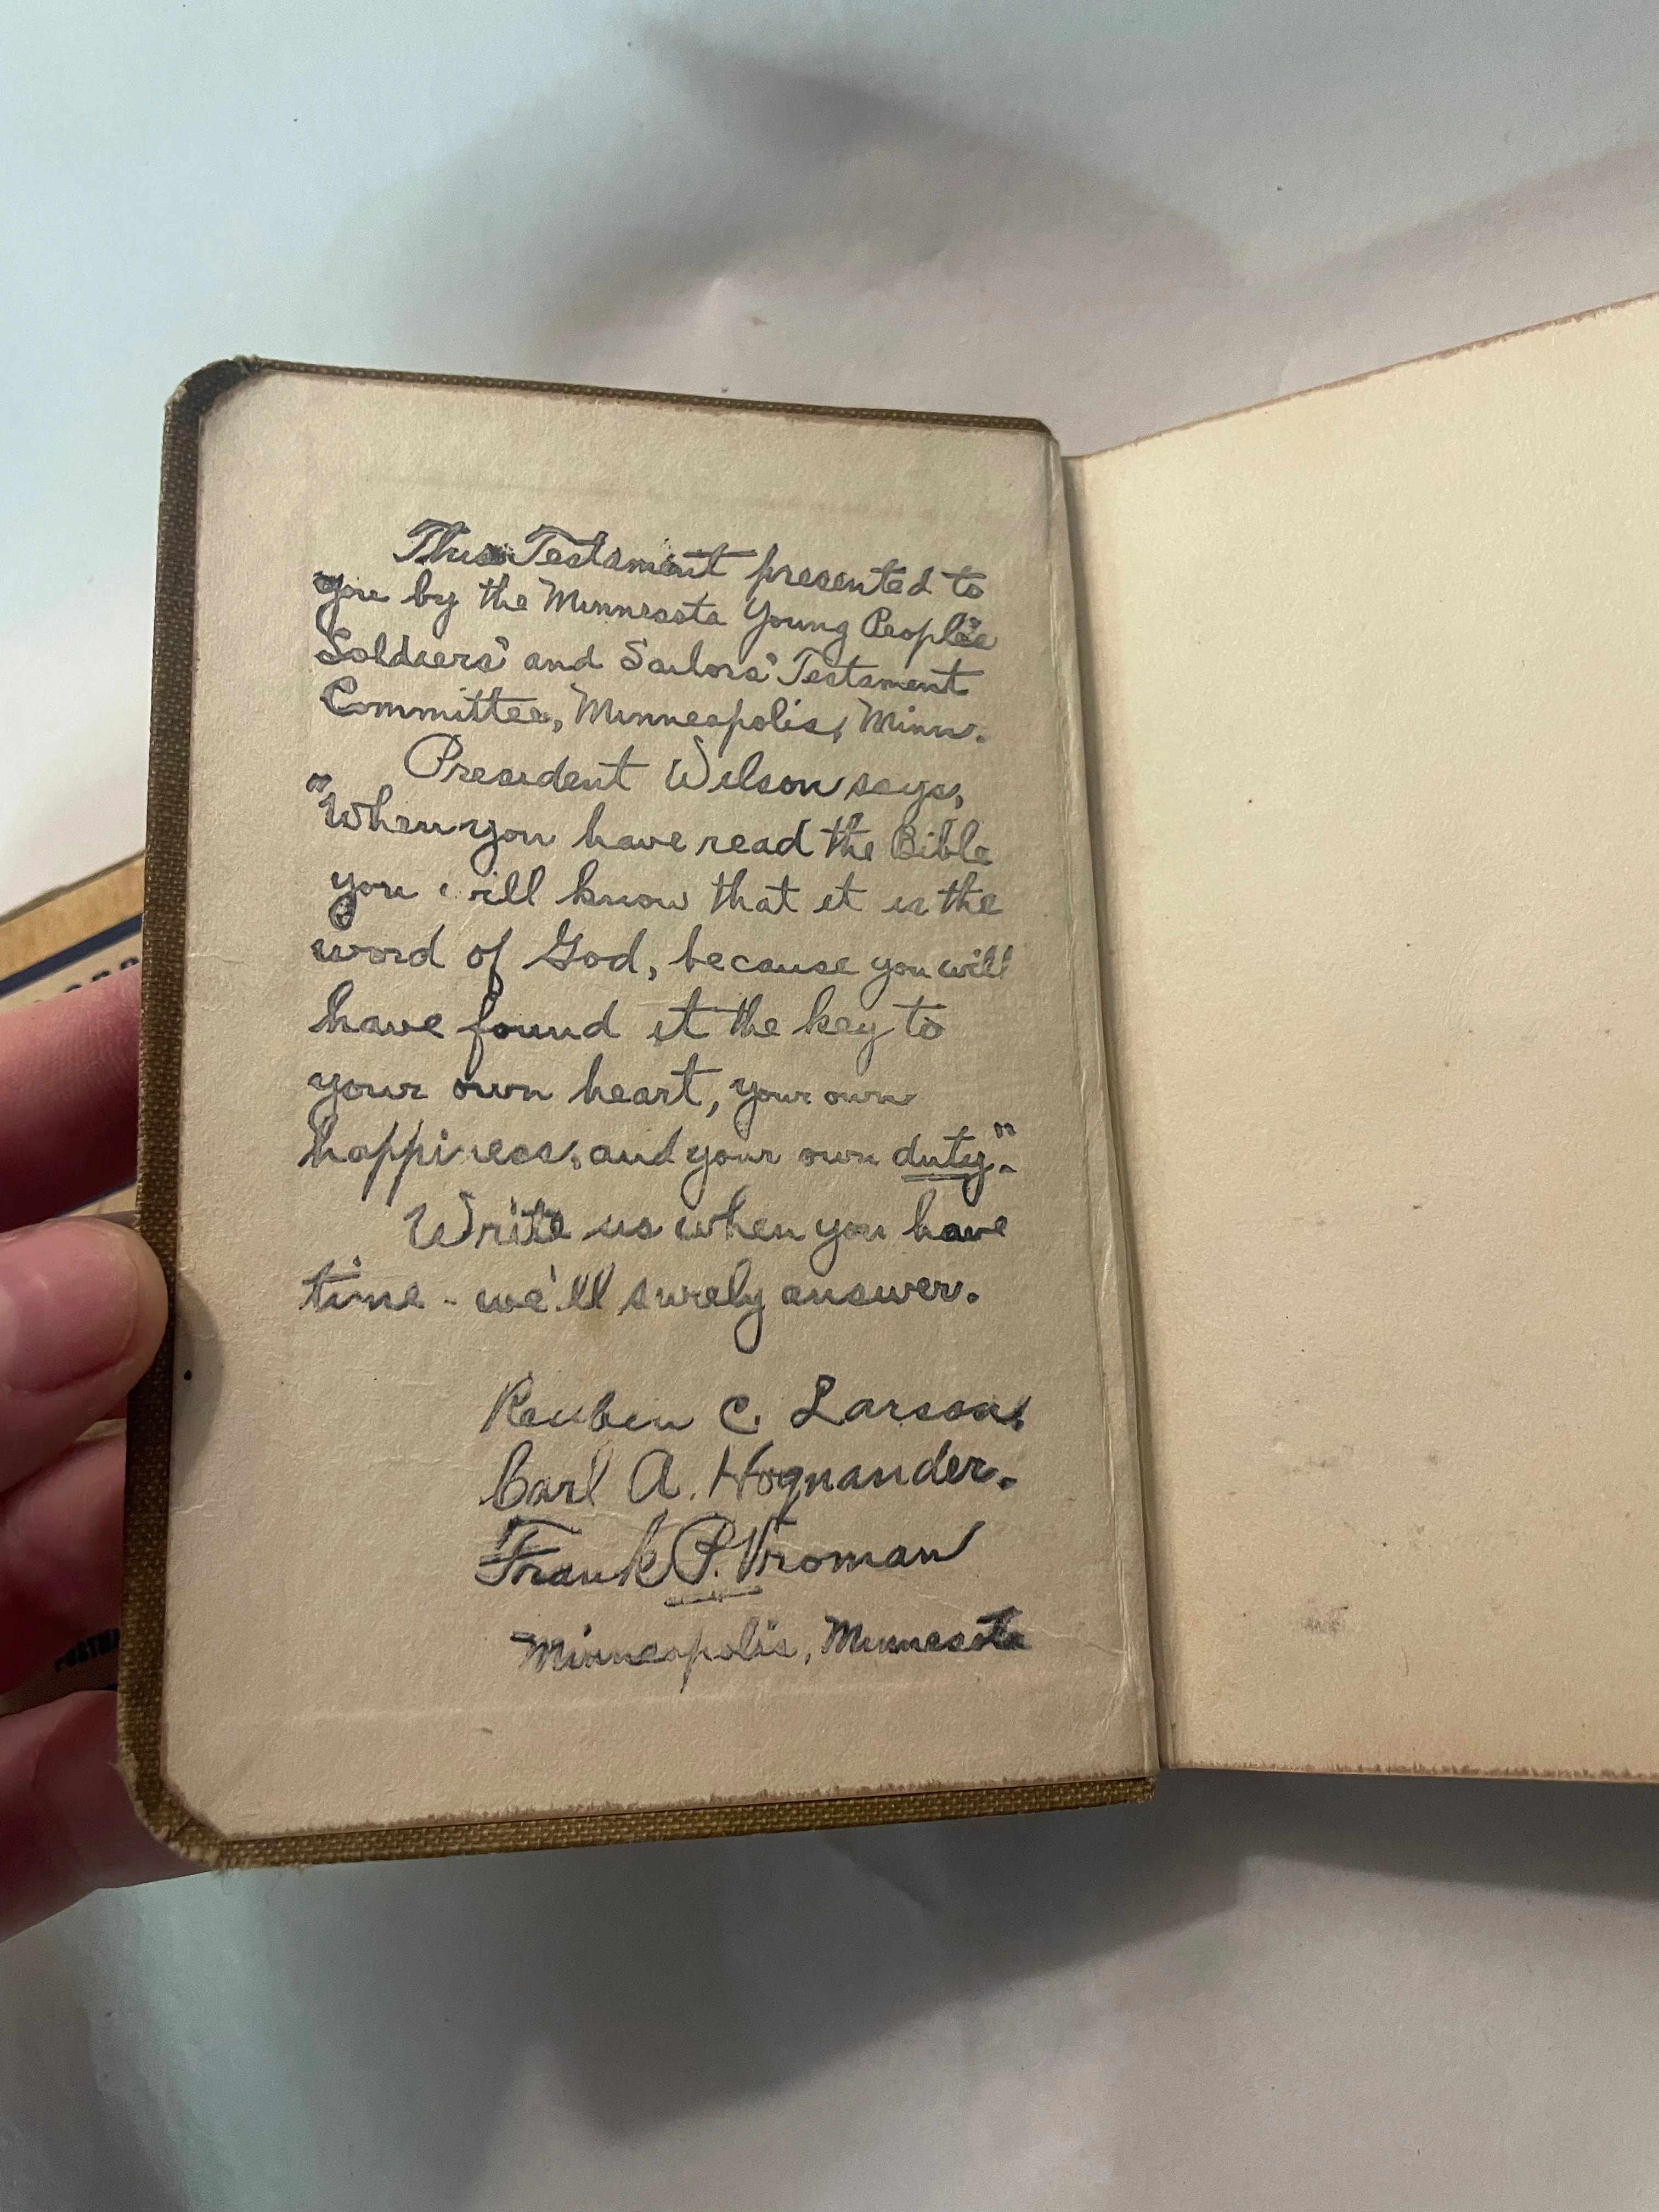 This Testament presented to
you by the Minnesota Young People's
Soldiers' and Sailors' Testament
Committee, Minneapolis, Minn.
President Wilson says,
"When you have read the Bible
you will know that it is the
word of God, because you will
have found it the key to
your own heart, your own
happiness, and your own duty".
Write us when you have
time - we'll surely answer.
Reuben C. Larson.
Carl A. Hognander.
Frank P. Vroman
Minneapolis, Minnesota